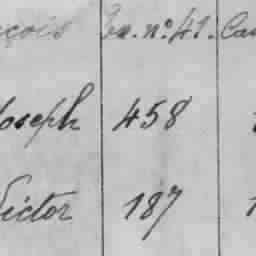 çois bu. nº 41. Can
Joseph 458
Victor 187